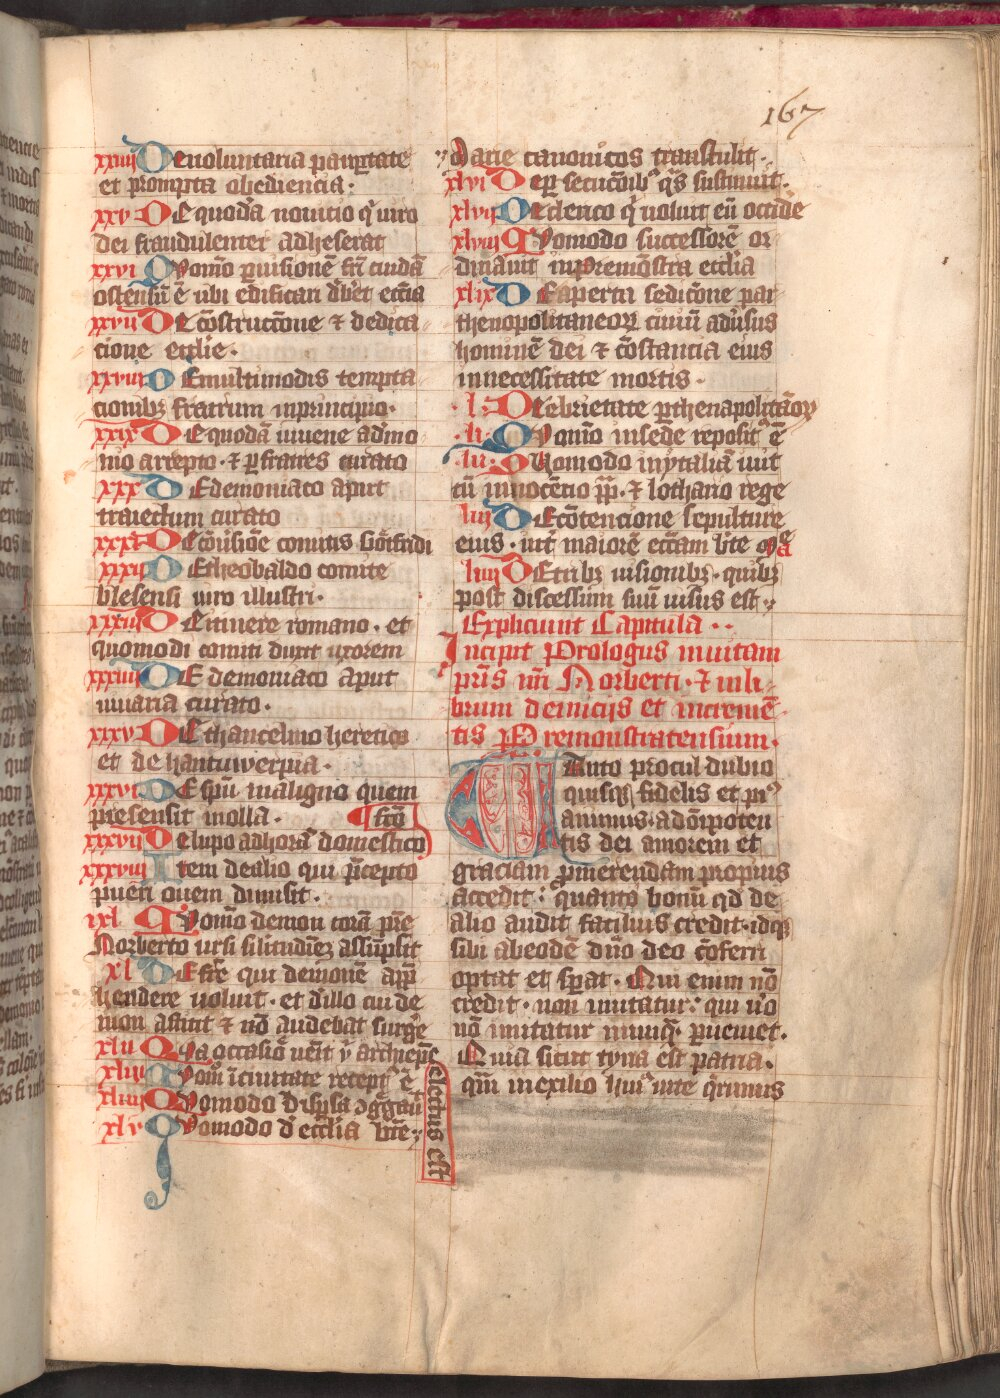 167
xxiiii De voluntaria paup̱tate
et prompta obediencia·
xxv De quodā nouitio q̇ uiro
dei fraudulenter adheserat
xxvi Quomo͞ p̱uisionē frī cuidā
ostensū ē ubi edificari d̄bet ecc̄ia
xxvii De c̄ostrucc̄one ⁊ dedica
cione ecc̄lie·
xxviii De multimodis tempta
cionibꝫ fratrum inprincipio·
xxix De quodā iuuene ad̓mo
nio arrepto·⁊ p̱ fratres curato
xxx De demoniaco aput
traiectum curato
xxxi De c̄oūsiōe comitis God̄fridi
xxxii De theobaldo comite
blesensi uiro illustri·
xxxiii De itinere romano· et
quomodi comiti duxit uxorem
xxxiiii De demoniaco aput
niuaria curato·
xxxv De thancelino heretico
et de hantuwerpia·
xxxvi De sp̄u maligno quem
presensit molla·
xxxvii De lupo ad horā domestico fc̄o
xxxviii Item de alio qui p̄cepto
pueri ouem dimisit·
ixl Quomo͞ demon corā p̄re
Norberto ursi silitudīeꝫ assūpsit
xl De fr̄e qui demonē app̄
hendere uoluit· et d̓illo cui de
mon astitit ⁊ nō audebat surg̓e
xlii Qua occasiōe uēit ī archiep̄ē
electus est
xliii Quom̄ ī ciuitate recept᷒ ē
xliiii Quomodo disp̱sa ꝯg̓gauit
xlv Quomodo d̓ ecc̄lia bt̄e
Marie canonicos transtulit·
xlvi De p̱secuc̄oibꝫ q̄s sustinuit·
xlvii De clerico q̇ uoluit eū occid̓e
xlviii Quomodo successorē or
dinauit in Premōstra ecc̄lia
xlix De aperta sedic̄one par
thenopolitaneoꝝ ciuiū adu̓sus
hominē dei ⁊ c̄ostancia eius
innecessitate mortis·
·l· De ebrietate p̱thenapolitāoꝝ
·li· Quomo͞ insede reposit᷒ ē
·lii· Quomodo inytaliā iuit
cū innocēcio p̄p̄·⁊ lothario rege
liii De c̄otencione sepulture
eius· int̓ maiorē ecc̄am bt̄e m̄e
liiii De tribꝫ uisionibꝫ· quibꝫ
post discessum suū uisus est
Expliciunt Capitula··
Incipit Prologus inuitam
pr̄is nr̄i Norberti·⁊ in li
brum de iniciis et increme͞
tis Premonstratensium·
Tanto procul dubio
quisqꝫ fidelis et pi᷒
animus·ad ōipoten
tis dei amorem et
graciam p̱merendam propius
accedit: quanto bonū qd̓ de
alio audit facilius credit·idqꝫ
sibi ab eodē dn̄o deo c̄oferri
optat et sp̱at· Qui enim nō
credit· non imitatur: qui u̓o
nō imitatur nunqꝫ· p̱ueniet·
Quia sicut cyna est patria·
qm̄ in exilio hui᷒ uite q̄rimus